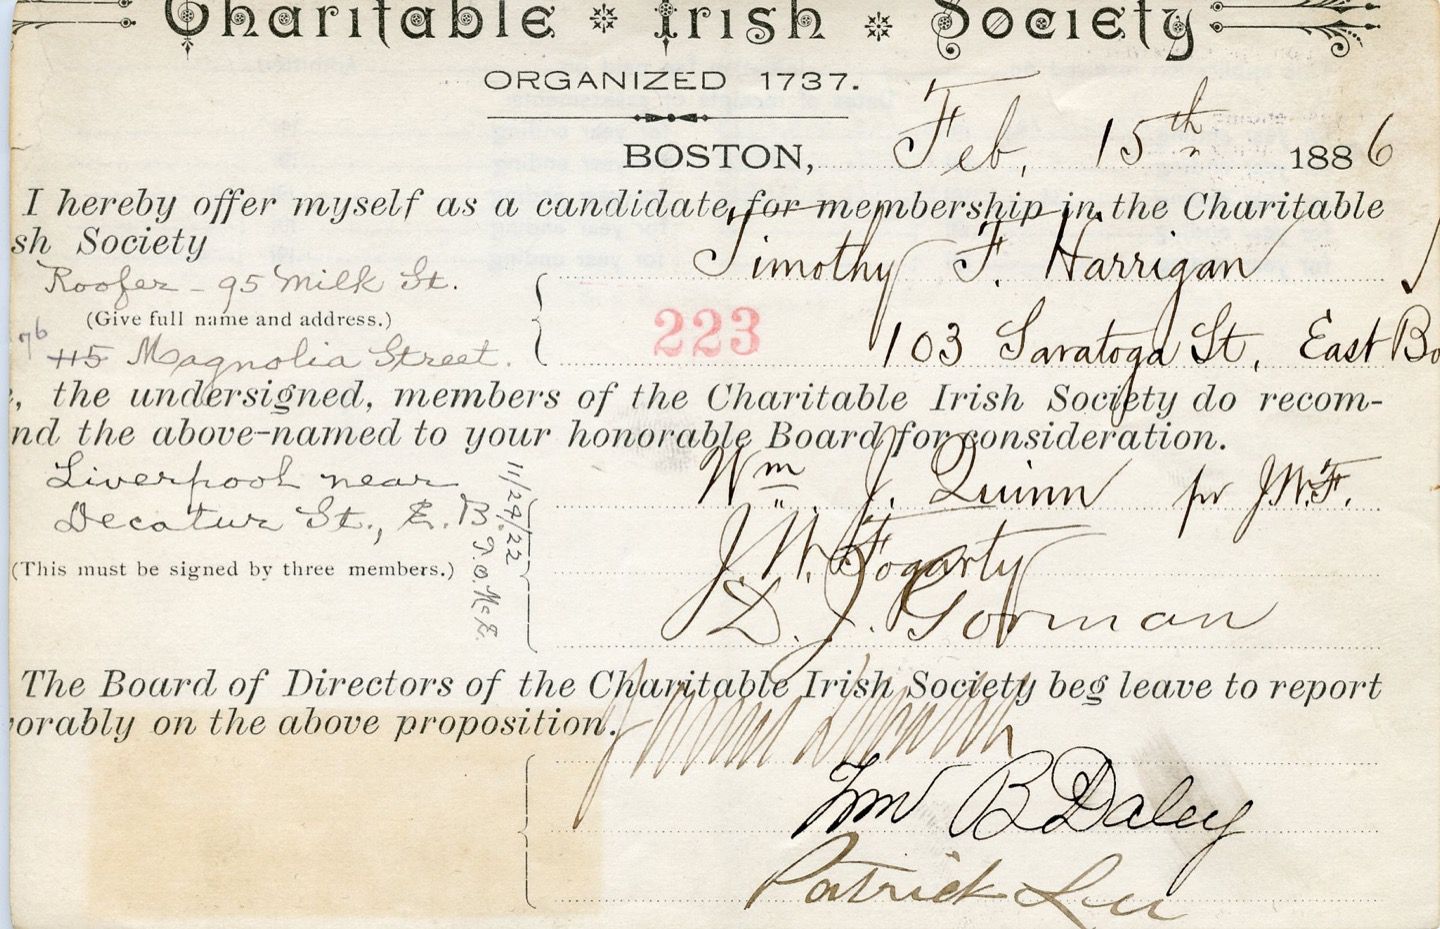 Charitable Irish Society
ORGANIZED 1737.
BOSTON, Feb. 15th 1886
I hereby offer myself as a candidate for membership in the Charitable
sh Society
Timothy F. Harrigan
Roofer - 95 Milk St.
(Give full name and address.)
223
103 Saratoga St, East Bo
76
115 Magnolia Street.
, the undersigned, members of the Charitable Irish Society do recom-
nd the above-named to your honorable Board for consideration.
Wm. J. Quinn pr J.W.F.
Liverpool near
Decatur St., E. B.
11/24/22
J. W. Fogarty
(This must be signed by three members.)
D. J. Gorman
The Board of Directors of the Charitable Irish Society beg leave to report
orably on the above proposition.
Wm B Daley
Patrick Lee